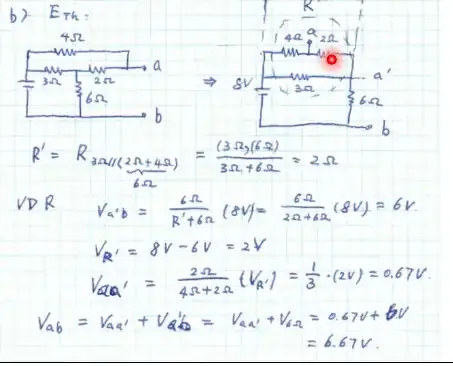 b) E_Th:
R'
4Ω a 2Ω
4Ω
a
3Ω 2Ω ⇒ 8V 3Ω a'
6Ω 6Ω
b b
R' = R_3Ω//(2Ω+4Ω) = (3Ω)(6Ω) / 3Ω+6Ω = 2Ω
6Ω
VDR V_a'b = 6Ω / R'+6Ω (8V) = 6Ω / 2Ω+6Ω (8V) = 6V.
V_R' = 8V - 6V = 2V
V_aa' = 2Ω / 4Ω+2Ω (V_R') = 1/3 · (2V) = 0.67V.
V_ab = V_aa' + V_a'b = V_aa' + V_6Ω = 0.67V + 6V
= 6.67V.